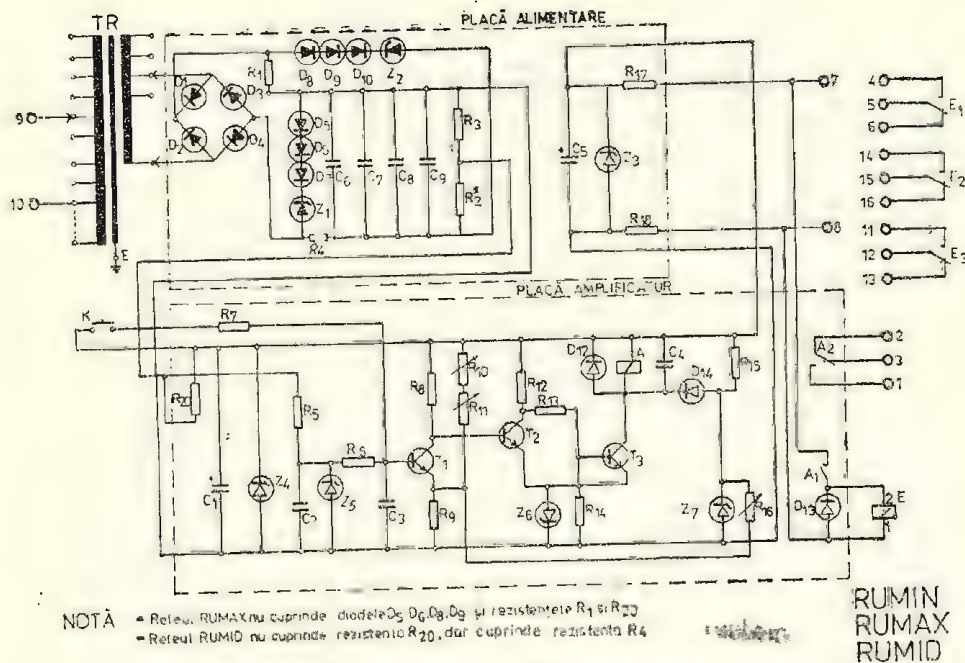 PLACĂ ALIMENTARE
TR
D1
D3
D2
D4
R1
D8 D9 D10 Z2
D5
D6
D7
Z1
R4
C6 C7 C8 C9
R3
R2
C5
Z3
R17
R18
7
8
9
10
E
4
5 E1
6
14
15 E2
16
11
12 E3
13
PLACĂ AMPLIFICATOR
K
R7
R20
R5
R6
C1
Z4
C2
Z5
C3
R8
R10
R11
T1
R9
R12
R13
T2
T3
Z6
R14
D12
A
C4
D14
R15
Z7
R16
A2
2
3
1
A1
D13
2 E
1
NOTĂ
- Releul RUMAX nu cuprinde diodele D5, D6, D8, D9 și rezistențele R1 și R20
- Releul RUMID nu cuprinde rezistența R20, dar cuprinde rezistența R4
RUMIN
RUMAX
RUMID